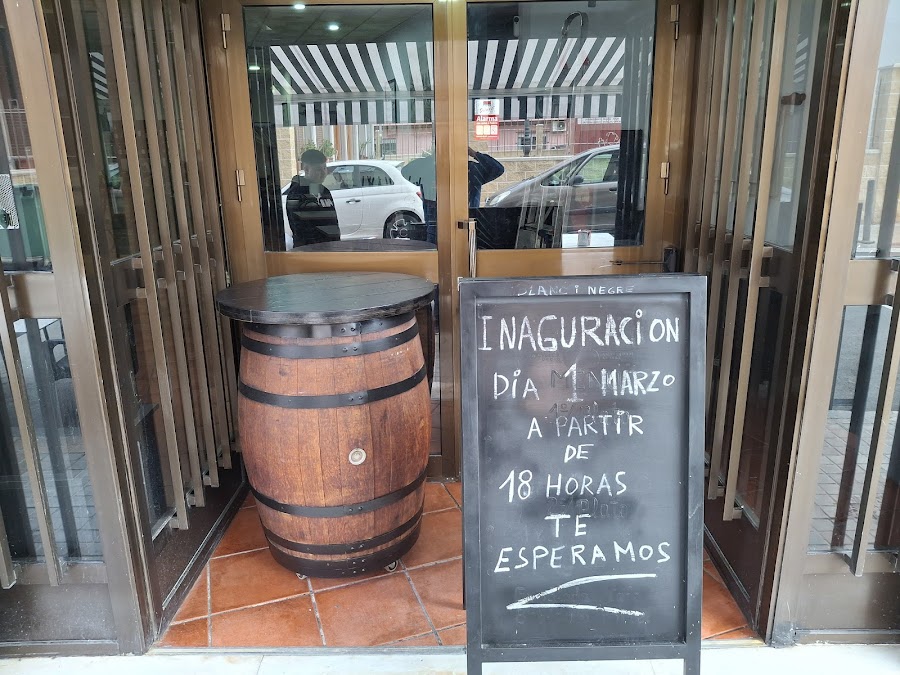 Alarma
BLANC I NEGRE
INAGURACION
DIA 1 MARZO
A PARTIR
DE
18 HORAS
TE
ESPERAMOS